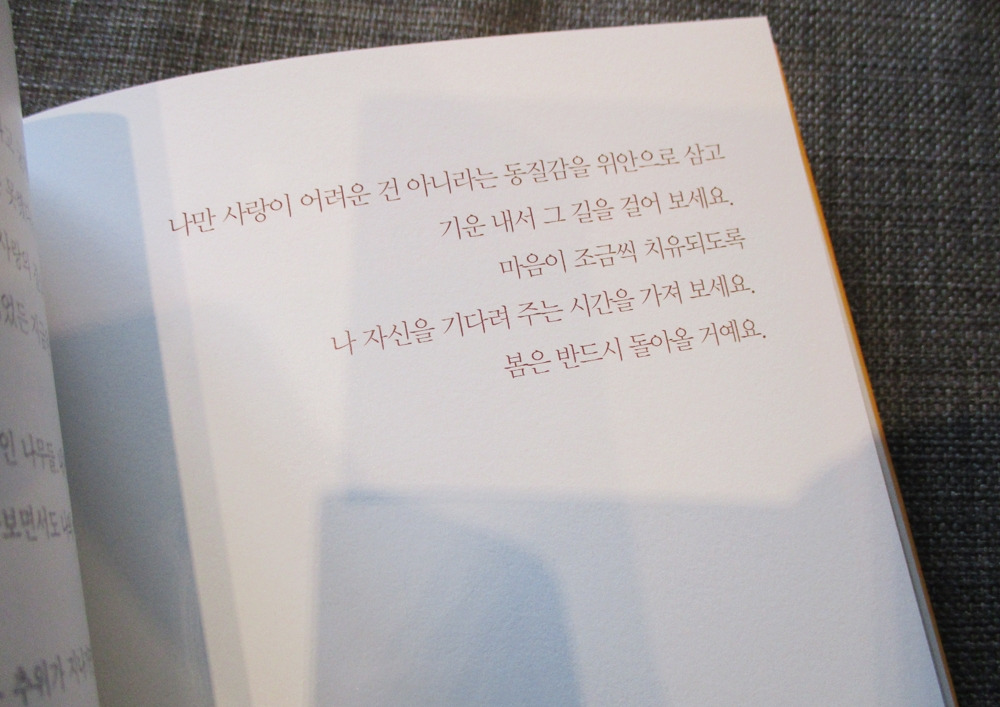 나만 사랑이 어려운 건 아니라는 동질감을 위안으로 삼고
기운 내서 그 길을 걸어 보세요.
마음이 조금씩 치유되도록
나 자신을 기다려 주는 시간을 가져 보세요.
봄은 반드시 돌아올 거예요.
인 나무들
보면서도
추위가